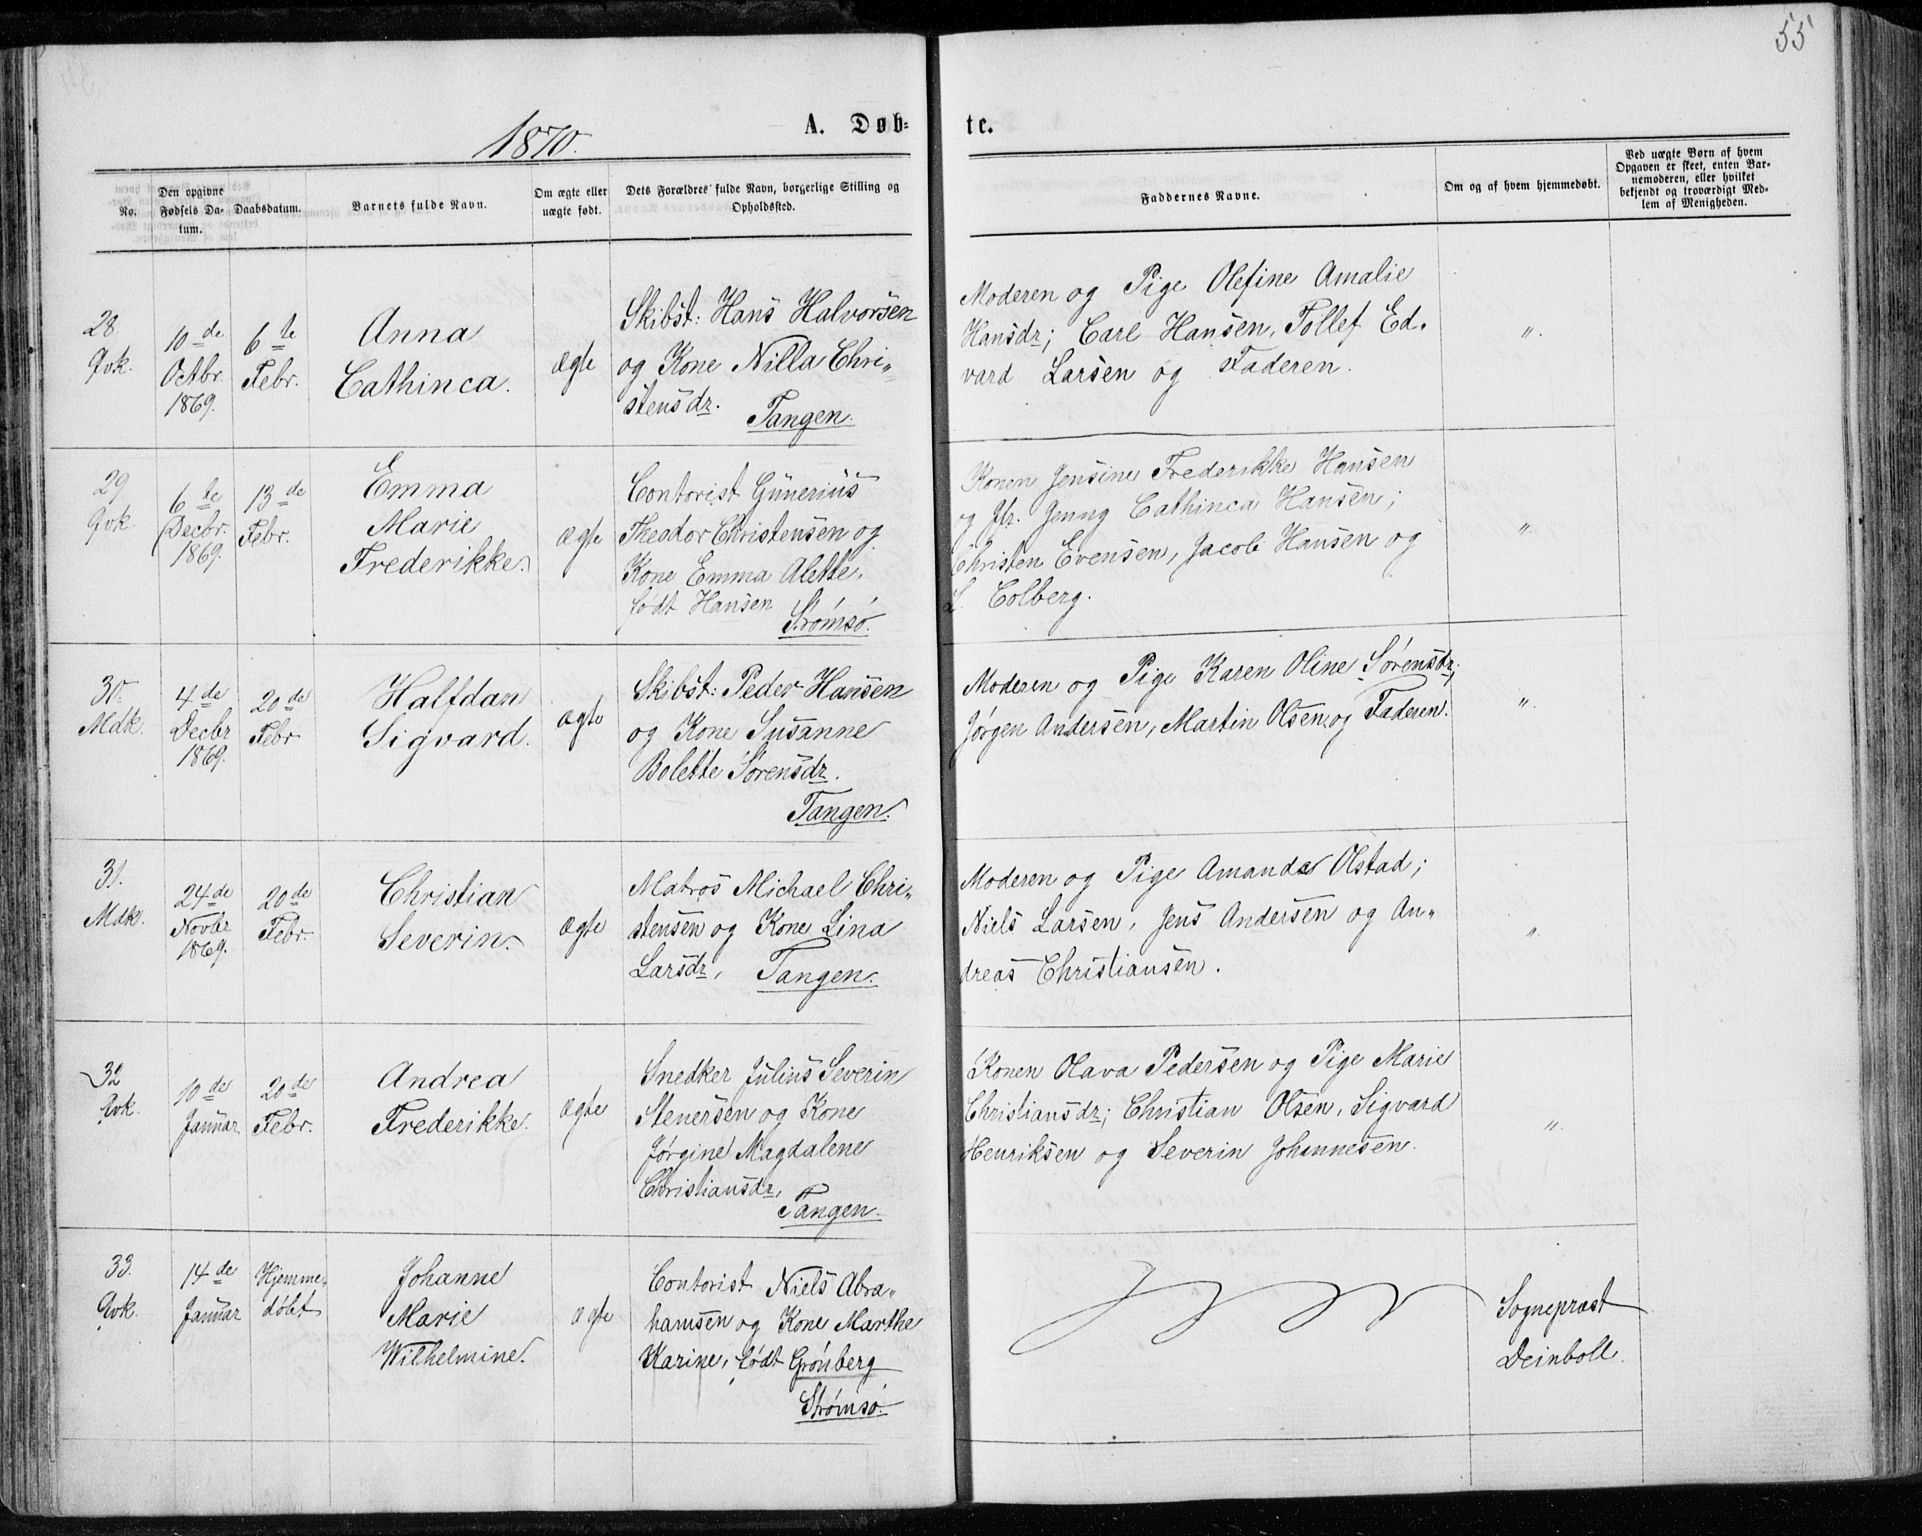 55
1870.
A. Døb-
te.
No.
Den opgivne
Fødsels Da-
tum.
Daabsdatum.
Barnets fulde Navn.
Om ægte eller
uægte født.
Dets Forældres fulde Navn, borgerlige Stilling og
Opholdssted.
Faddernes Navne.
Om og af hvem hjemmedøbt.
Ved uægte Børn af hvem
Opgaven er skeet, enten Bar-
nemoderen, eller hvilket
bekjendt og troværdigt Med-
lem af Menigheden.
28
Qvk.
10de
Octbr.
1869.
6te
Febr.
Anna
Cathinca.
ægte
Skibst: Hans Halvorsen
og Kone Nilla Chri-
stensdr.
Tangen.
Moderen og Pige Olefine Amalie
Hansdr; Carl Hansen, Tollef Ed-
vard Larsen og Faderen.
".
29
Qvk.
6te
Decbr.
1869.
13de
Febr.
Emma
Marie
Frederikke.
ægte
Contorist Günerius
Theodor Christensen og
Kone Emma Alette,
født Hansen
Strømsø.
Konen Jensine Frederikke Hansen
og Jfr. Jenny Cathinca Hansen;
Christen Evensen, Jacob Hansen og
L. Colberg.
".
30.
Mdk.
4de
Decbr
1869.
20de
Febr
Halfdan
Sigvard.
ægte
Skibst: Peder Hansen
og Kone Susanne
Bolette Sørensdr.
Tangen.
Moderen og Pige Karen Oline Sørensdr;
Jørgen Andersen, Martin Olsen og Faderen.
".
31.
Mdk.
24de
Novbr
1869.
20de
Febr.
Christian
Severin.
ægte
Matros Michael Chri-
stensen og Kone Lina
Larsdr, Tangen.
Moderen og Pige Amanda Olstad;
Niels Larsen, Jens Andersen og An-
dreas Christiansen.
".
32
Qvk.
10de
Januar
20de
Febr.
Andrea
Frederikke.
ægte
Snedker Julius Severin
Stenersen og Kone
Jørgine Magdalene
Christiansdr,
Tangen.
Konen Olava Pedersen og Pige Marie
Christiansdr; Christian Olsen, Sigvard
Henriksen og Severin Johannesen.
".
33.
Qvk.
14de
Januar
Hjemme-
døbt
Johanne
Marie
Wilhelmine.
ægte
Contorist Niels Abra-
hamsen og Kone Marthe
Karine, født Grønberg
Strømsø.
Sognepræst
Deinboll.